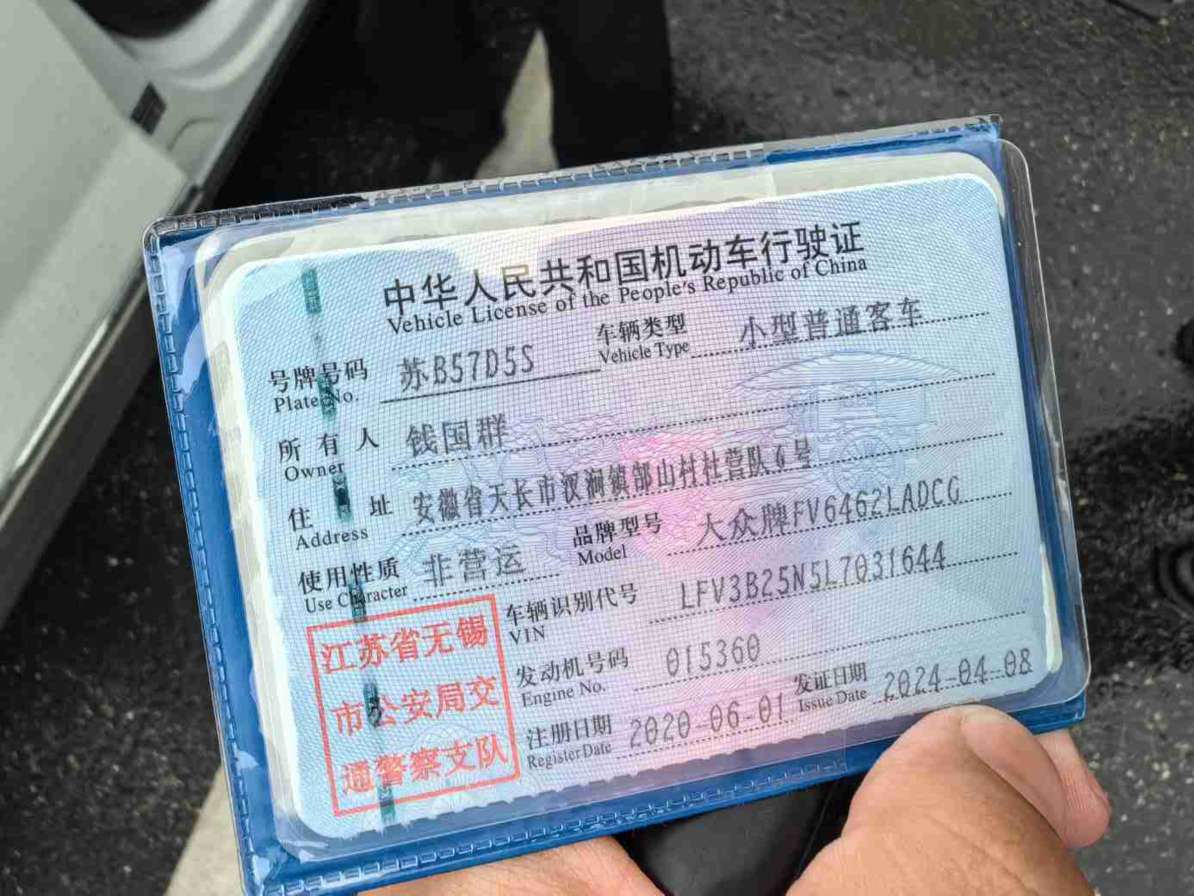 中华人民共和国机动车行驶证
Vehicle License of the People's Republic of China
号牌号码 苏B57D5S 车辆类型 小型普通客车
Plate No. Vehicle Type
所有人 钱国群
Owner
住址 安徽省天长市汊涧镇郜山村杜营队6号
Address
使用性质 非营运 品牌型号 大众牌FV6462LADCG
Use Character Model
江苏省无锡
市公安局交
通警察支队
车辆识别代号 LFV3B25N5L7031644
VIN
发动机号码 015360
Engine No.
注册日期 2020-06-01 发证日期 2024-04-08
Register Date Issue Date